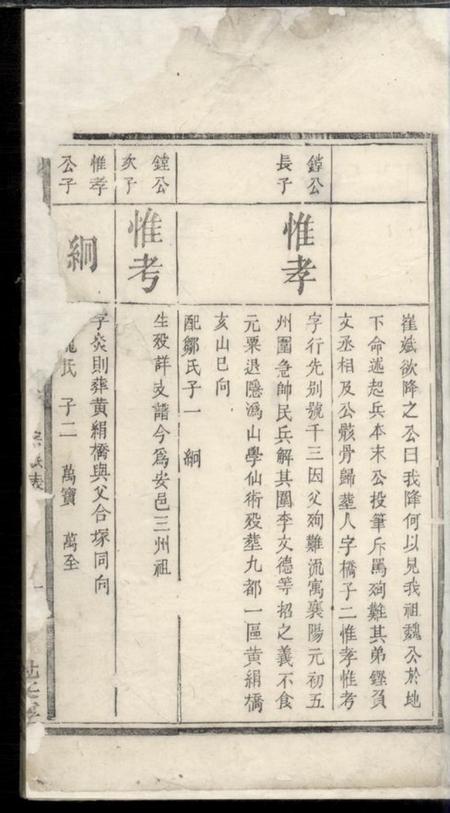 崔斌欲降之公曰我降何以見我祖魏公於地
下命述起兵本末公投筆斥罵殉難其弟鏗負
文丞相及公骸骨歸塟人字橋子二惟孝惟考
鏜公
長子
惟孝
字行先别號千三因父殉難流寓襄陽元初五
州圍急帥民兵解其圍李文德等招之義不食
元粟退隱溈山學仙術殁塟九都一區黄絹橋
亥山巳向
配鄒氏子一 絅
鏜公
次子
惟考
生殁詳支譜今爲安邑三州祖
惟孝
公子
絅
字炎則葬黄絹橋與父合塚同向
氏 子二 萬寶 萬至